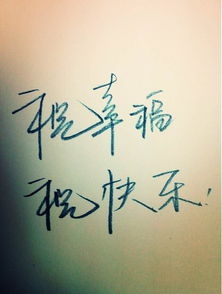 祝幸福
祝快乐!